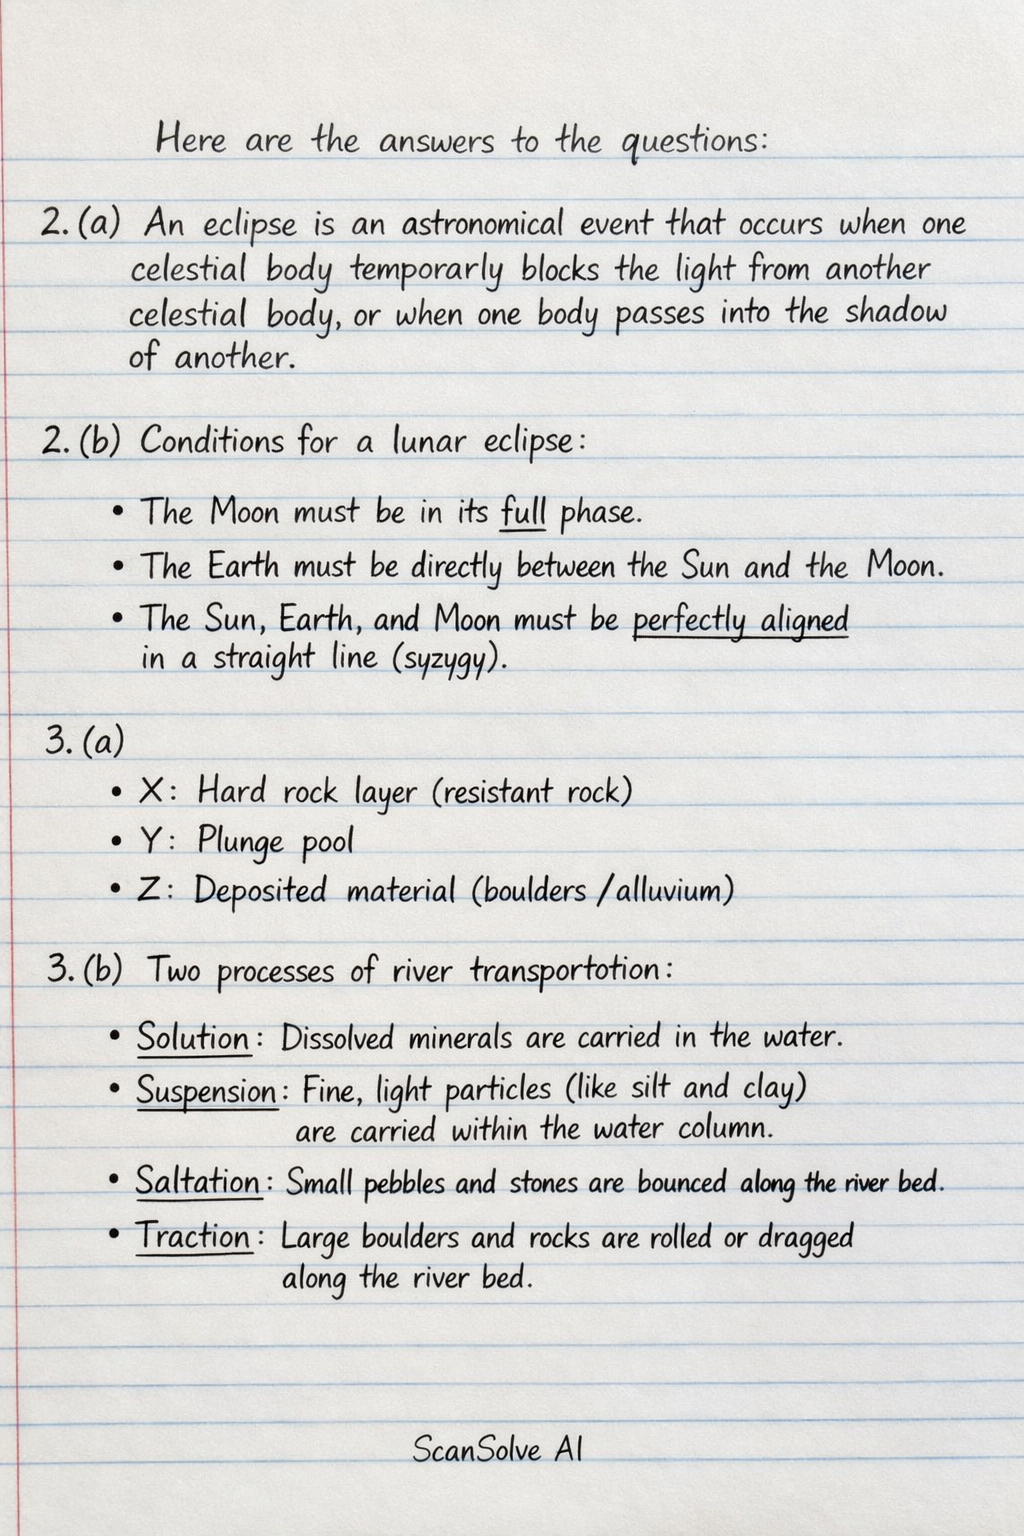 Here are the answers to the questions:
2. (a) An eclipse is an astronomical event that occurs when one
celestial body temporarly blocks the light from another
celestial body, or when one body passes into the shadow
of another.
2. (b) Conditions for a lunar eclipse:
• The Moon must be in its full phase.
• The Earth must be directly between the Sun and the Moon.
• The Sun, Earth, and Moon must be perfectly aligned
in a straight line (syzygy).
3. (a)
• X: Hard rock layer (resistant rock)
• Y: Plunge pool
• Z: Deposited material (boulders / alluvium)
3. (b) Two processes of river transportotion:
• Solution: Dissolved minerals are carried in the water.
• Suspension: Fine, light particles (like silt and clay)
are carried within the water column.
• Saltation: Small pebbles and stones are bounced along the river bed.
• Traction: Large boulders and rocks are rolled or dragged
along the river bed.
ScanSolve AI